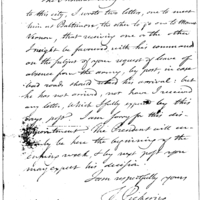 to this city, I wrote two letters, one to meet
him at Baltimore, the other to go on to Mount
Vernon, that receiving one or the other
I might be favored with his command
on the subject of your request of leave of
absence from the army, by post, in case
bad roads should retard his arrival: but
he has not arrived, nor have I received
any letter, which I fully expected by this
day's post. I am sorry for this dis-
appointment. The President will cer-
tainly be here the beginning of the
ensuing week, & by next post you
may expect his decision.
I am respectfully yours
T. Pickering